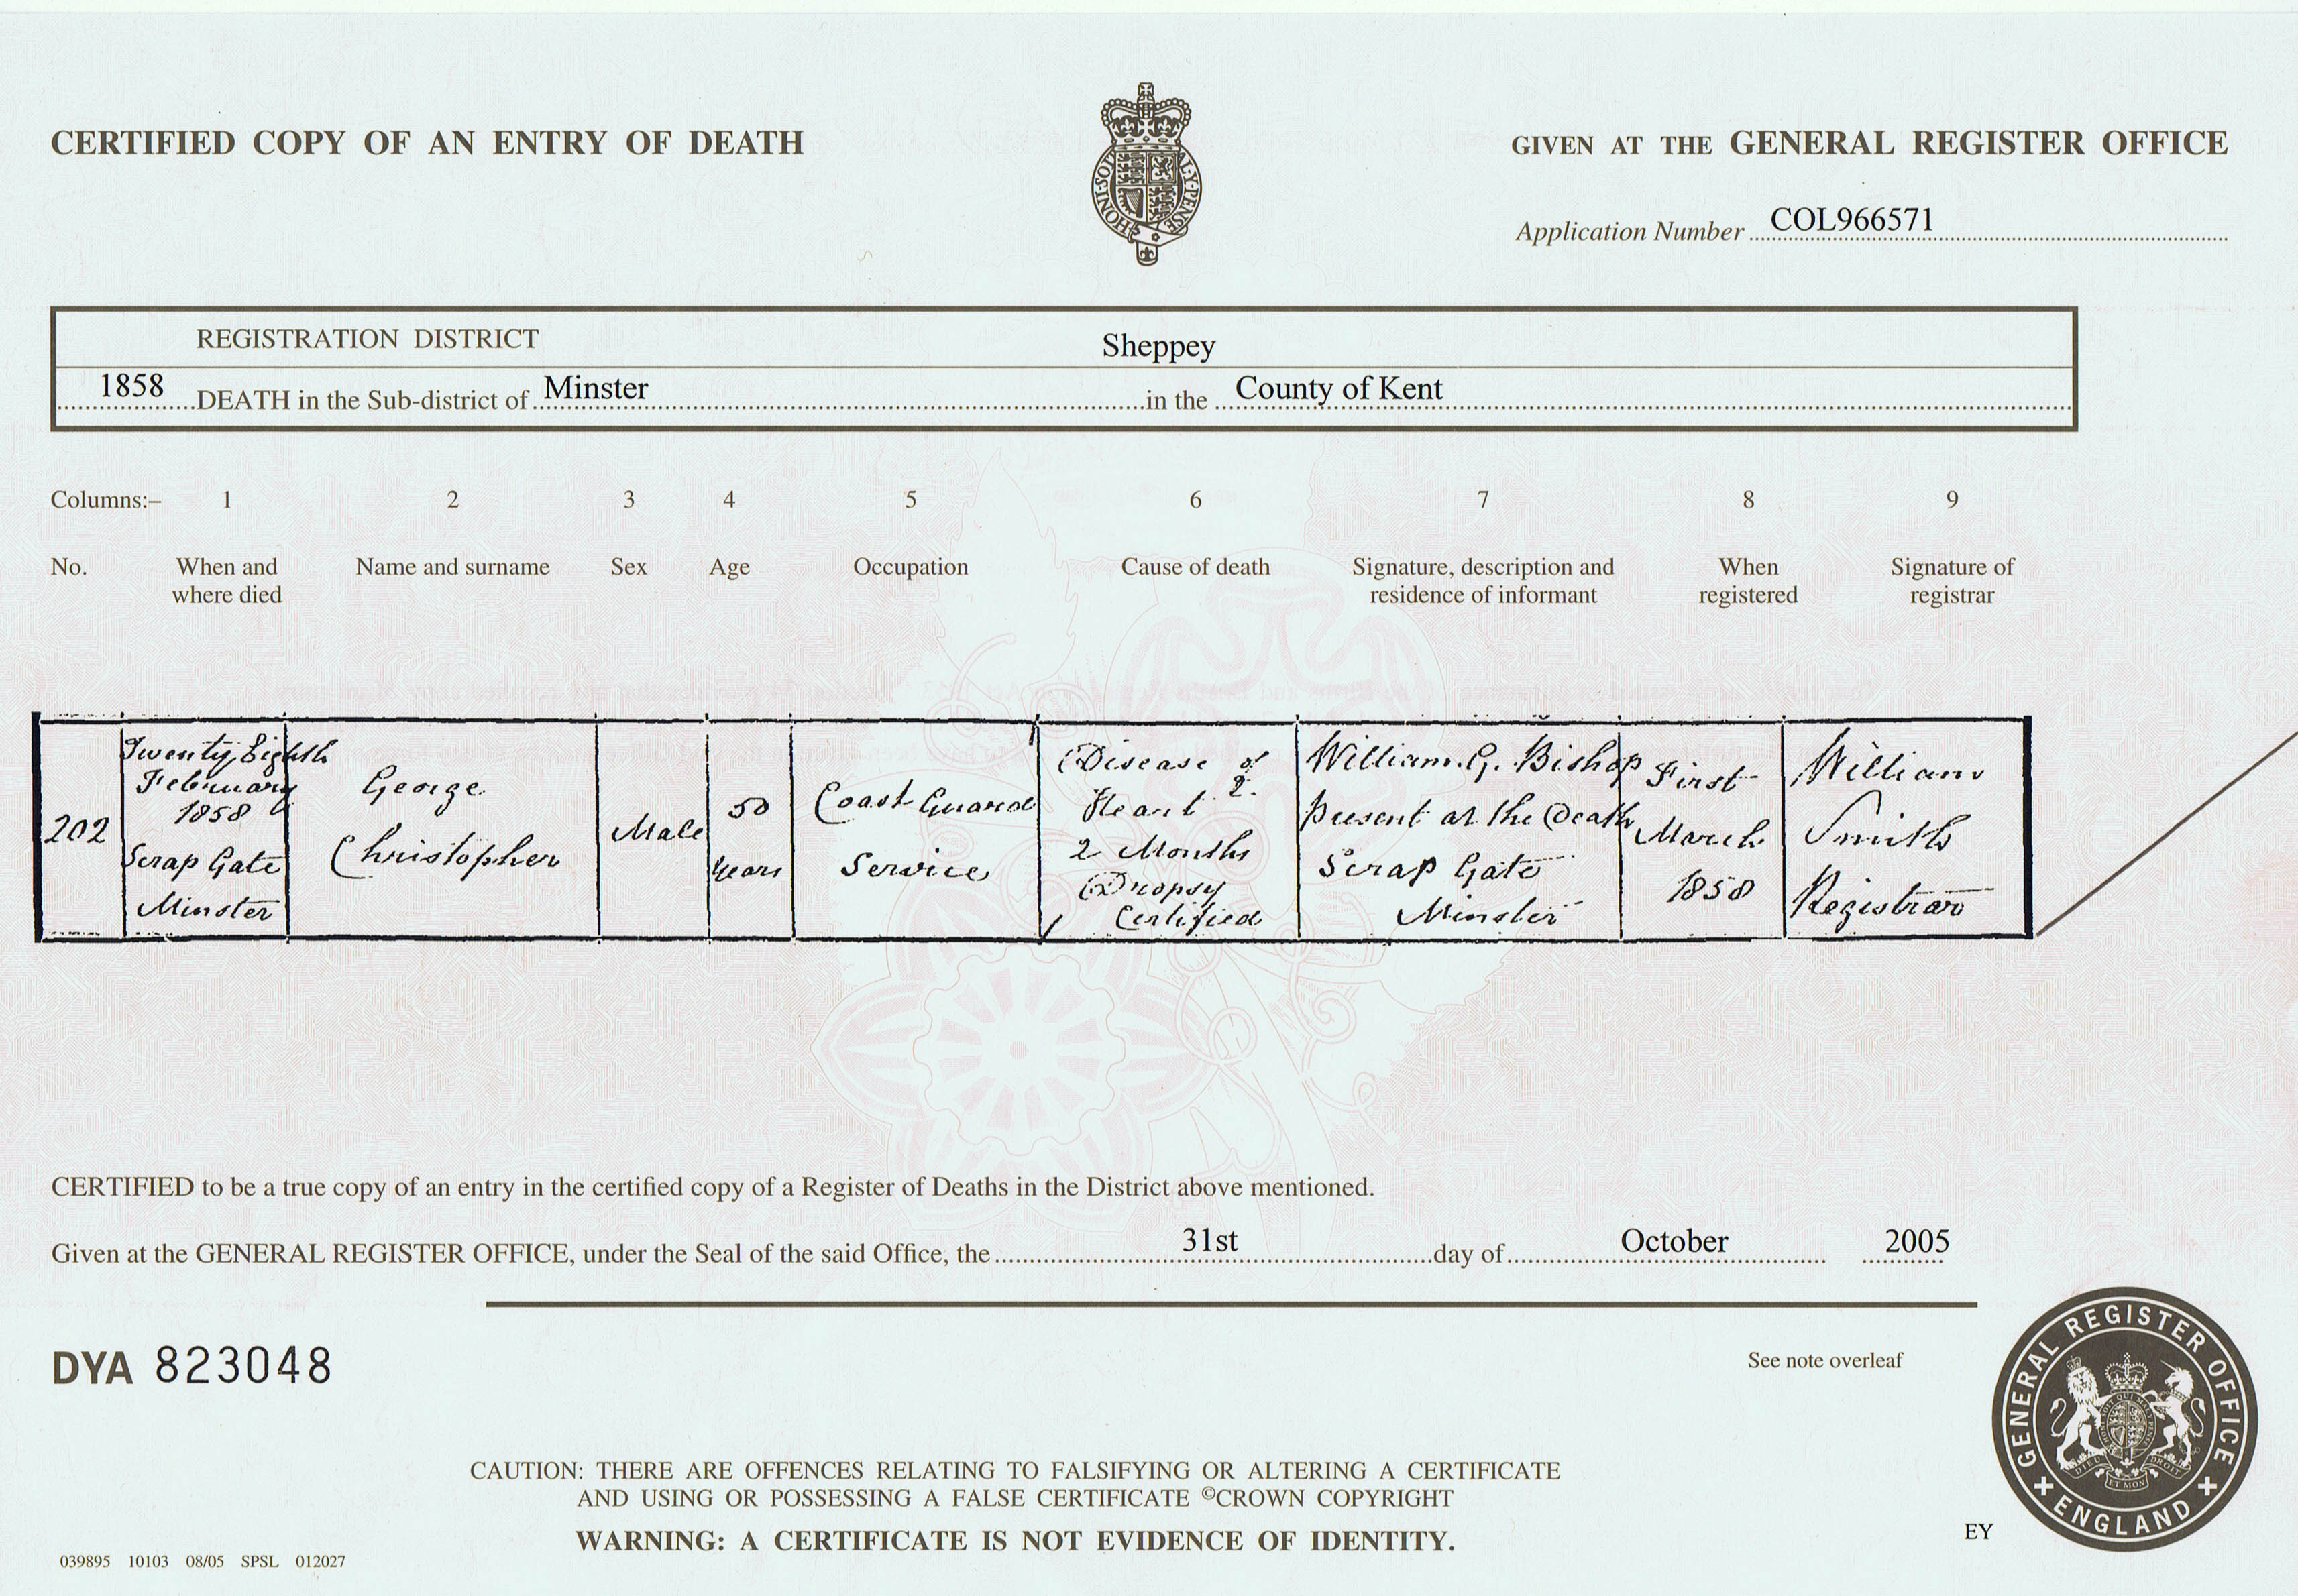 CERTIFIED COPY OF AN ENTRY OF DEATH
HONI·SOI Y·PENSE
GIVEN AT THE GENERAL REGISTER OFFICE
Application Number COL966571
REGISTRATION DISTRICT Sheppey
1858 DEATH in the Sub-district of Minster in the County of Kent
Columns:– 1 2 3 4 5 6 7 8 9
No. When and where died Name and surname Sex Age Occupation Cause of death Signature, description and residence of informant When registered Signature of registrar
202
Twenty Eighth
February
1858
Scrap Gate
Minster
George
Christopher
Male
50
Years
Coast Guard
Service
Disease of
Heart 2.
2 Months
Dropsy
Certified
William. G. Bishop
Present at the Death
Scrap Gate
Minster
First
March
1858
William
Smith
Registrar
CERTIFIED to be a true copy of an entry in the certified copy of a Register of Deaths in the District above mentioned.
Given at the GENERAL REGISTER OFFICE, under the Seal of the said Office, the 31st day of October 2005
DYA 823048
See note overleaf
GENERAL REGISTER OFFICE
ENGLAND
DIEU ET MON DROIT
CAUTION: THERE ARE OFFENCES RELATING TO FALSIFYING OR ALTERING A CERTIFICATE
AND USING OR POSSESSING A FALSE CERTIFICATE ©CROWN COPYRIGHT
WARNING: A CERTIFICATE IS NOT EVIDENCE OF IDENTITY.
EY
039895 10103 08/05 SPSL 012027